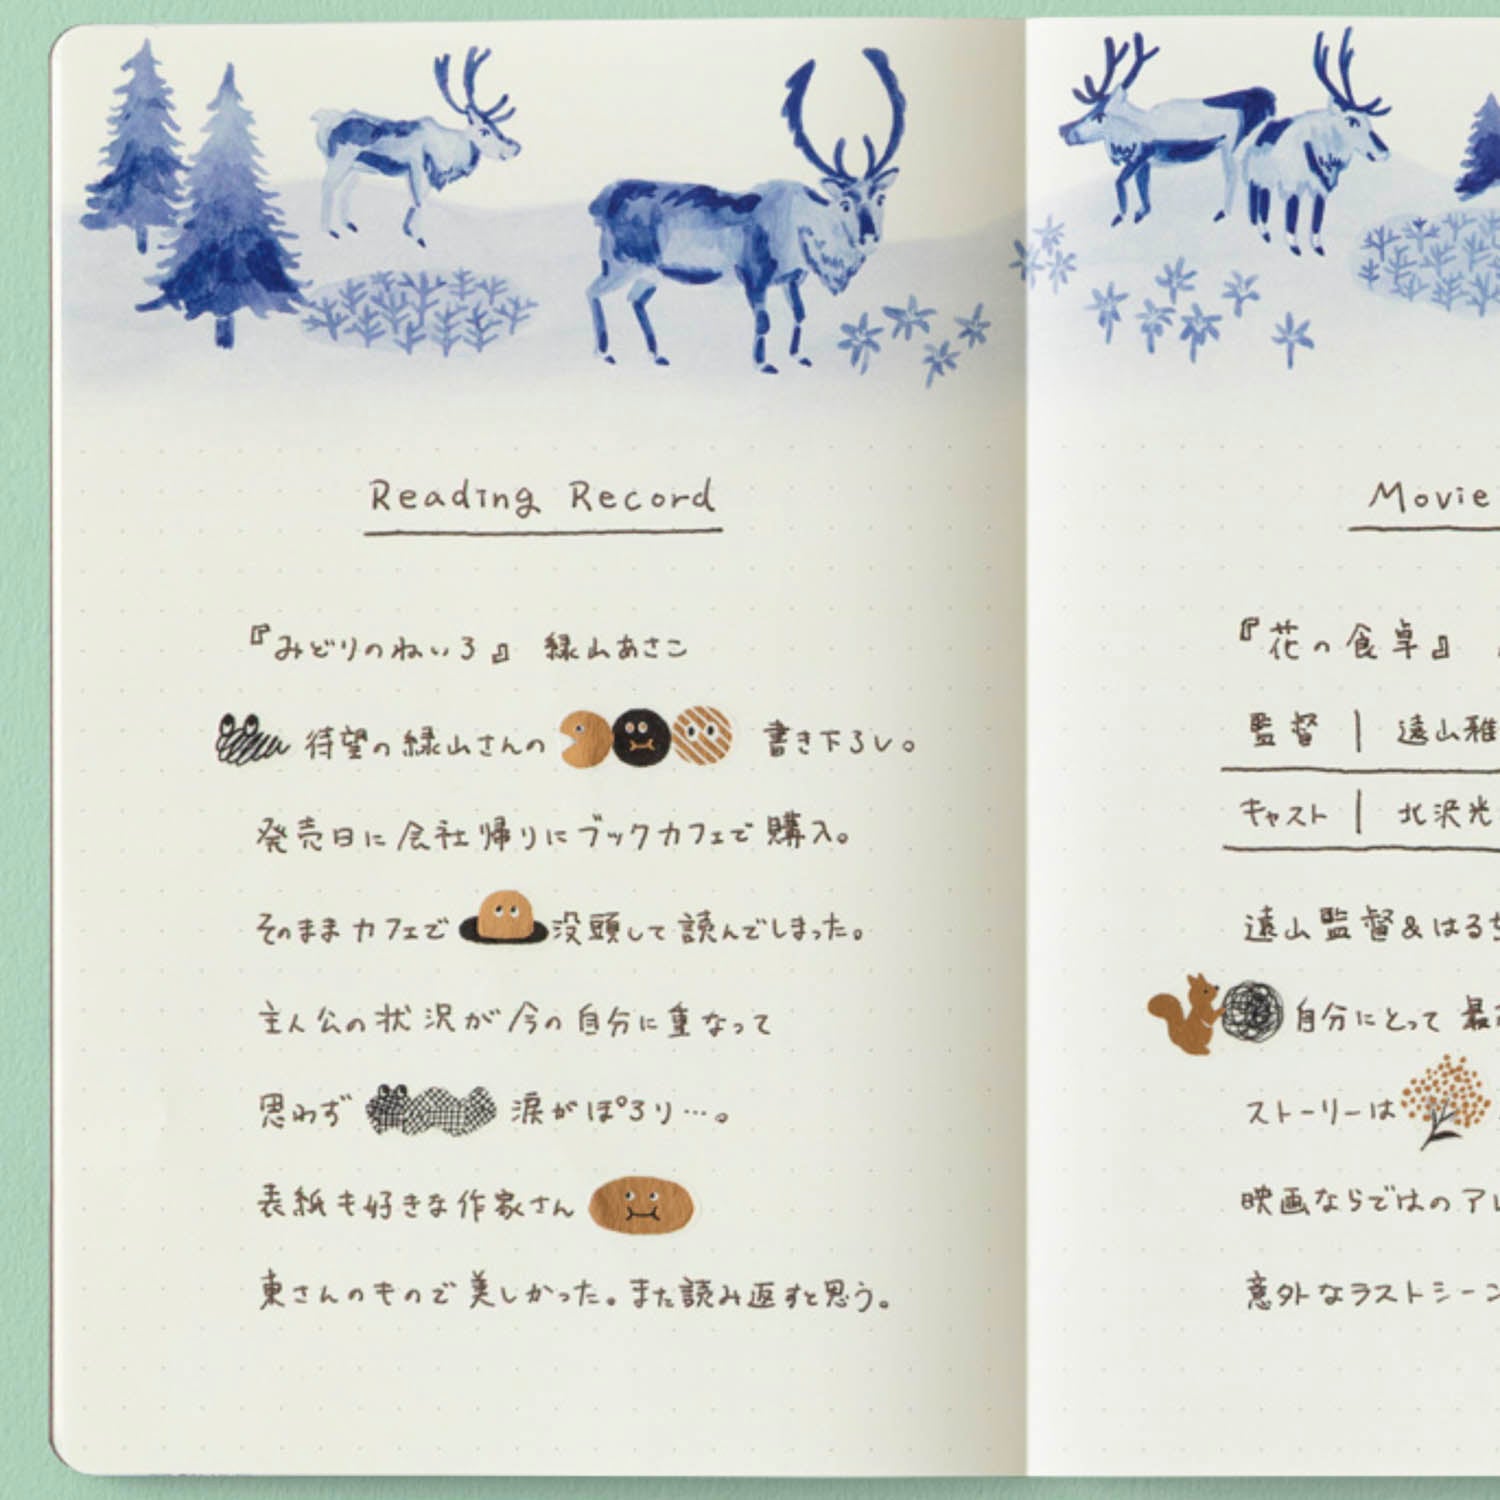 Reading Record
『みどりのねいろ』 緑山あさこ
待望の緑山さんの 書き下ろし。
発売日に会社帰りにブックカフェで購入。
そのままカフェで 没頭して読んでしまった。
主人公の状況が今の自分に重なって
思わず 涙がぽろり…。
表紙も好きな作家さん
東さんのもので美しかった。また読み返すと思う。
Movie
『花の食卓』
監督 | 遠山雅
キャスト | 北沢光
遠山監督&はるち
自分にとって 最高
ストーリーは
映画ならではのアレ
意外なラストシーン